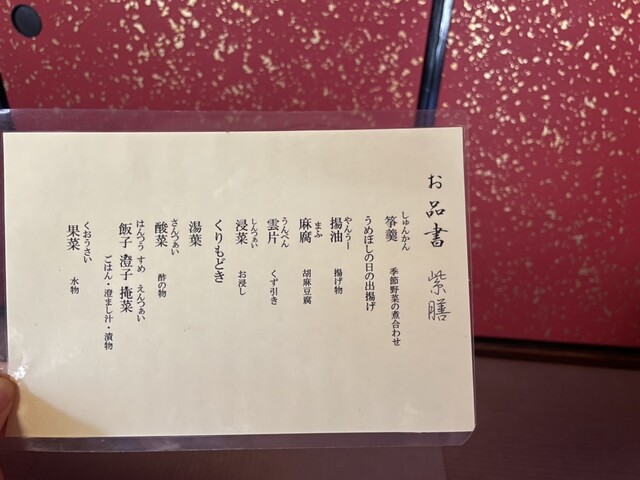 お品書 紫膳
しゅんかん
筝羹 季節野菜の煮合わせ
うめぼしの日の出揚げ
やんうー
揚油 揚げ物
まふ
麻腐 胡麻豆腐
うんぺん
雲片 くず引き
しんつぁい
浸菜 お浸し
くりもどき
湯葉
さんつぁい
酸菜 酢の物
はんつう すめ えんつぁい
飯子 澄子 掩菜 ごはん・澄まし汁・漬物
くおうさい
果菜 水物